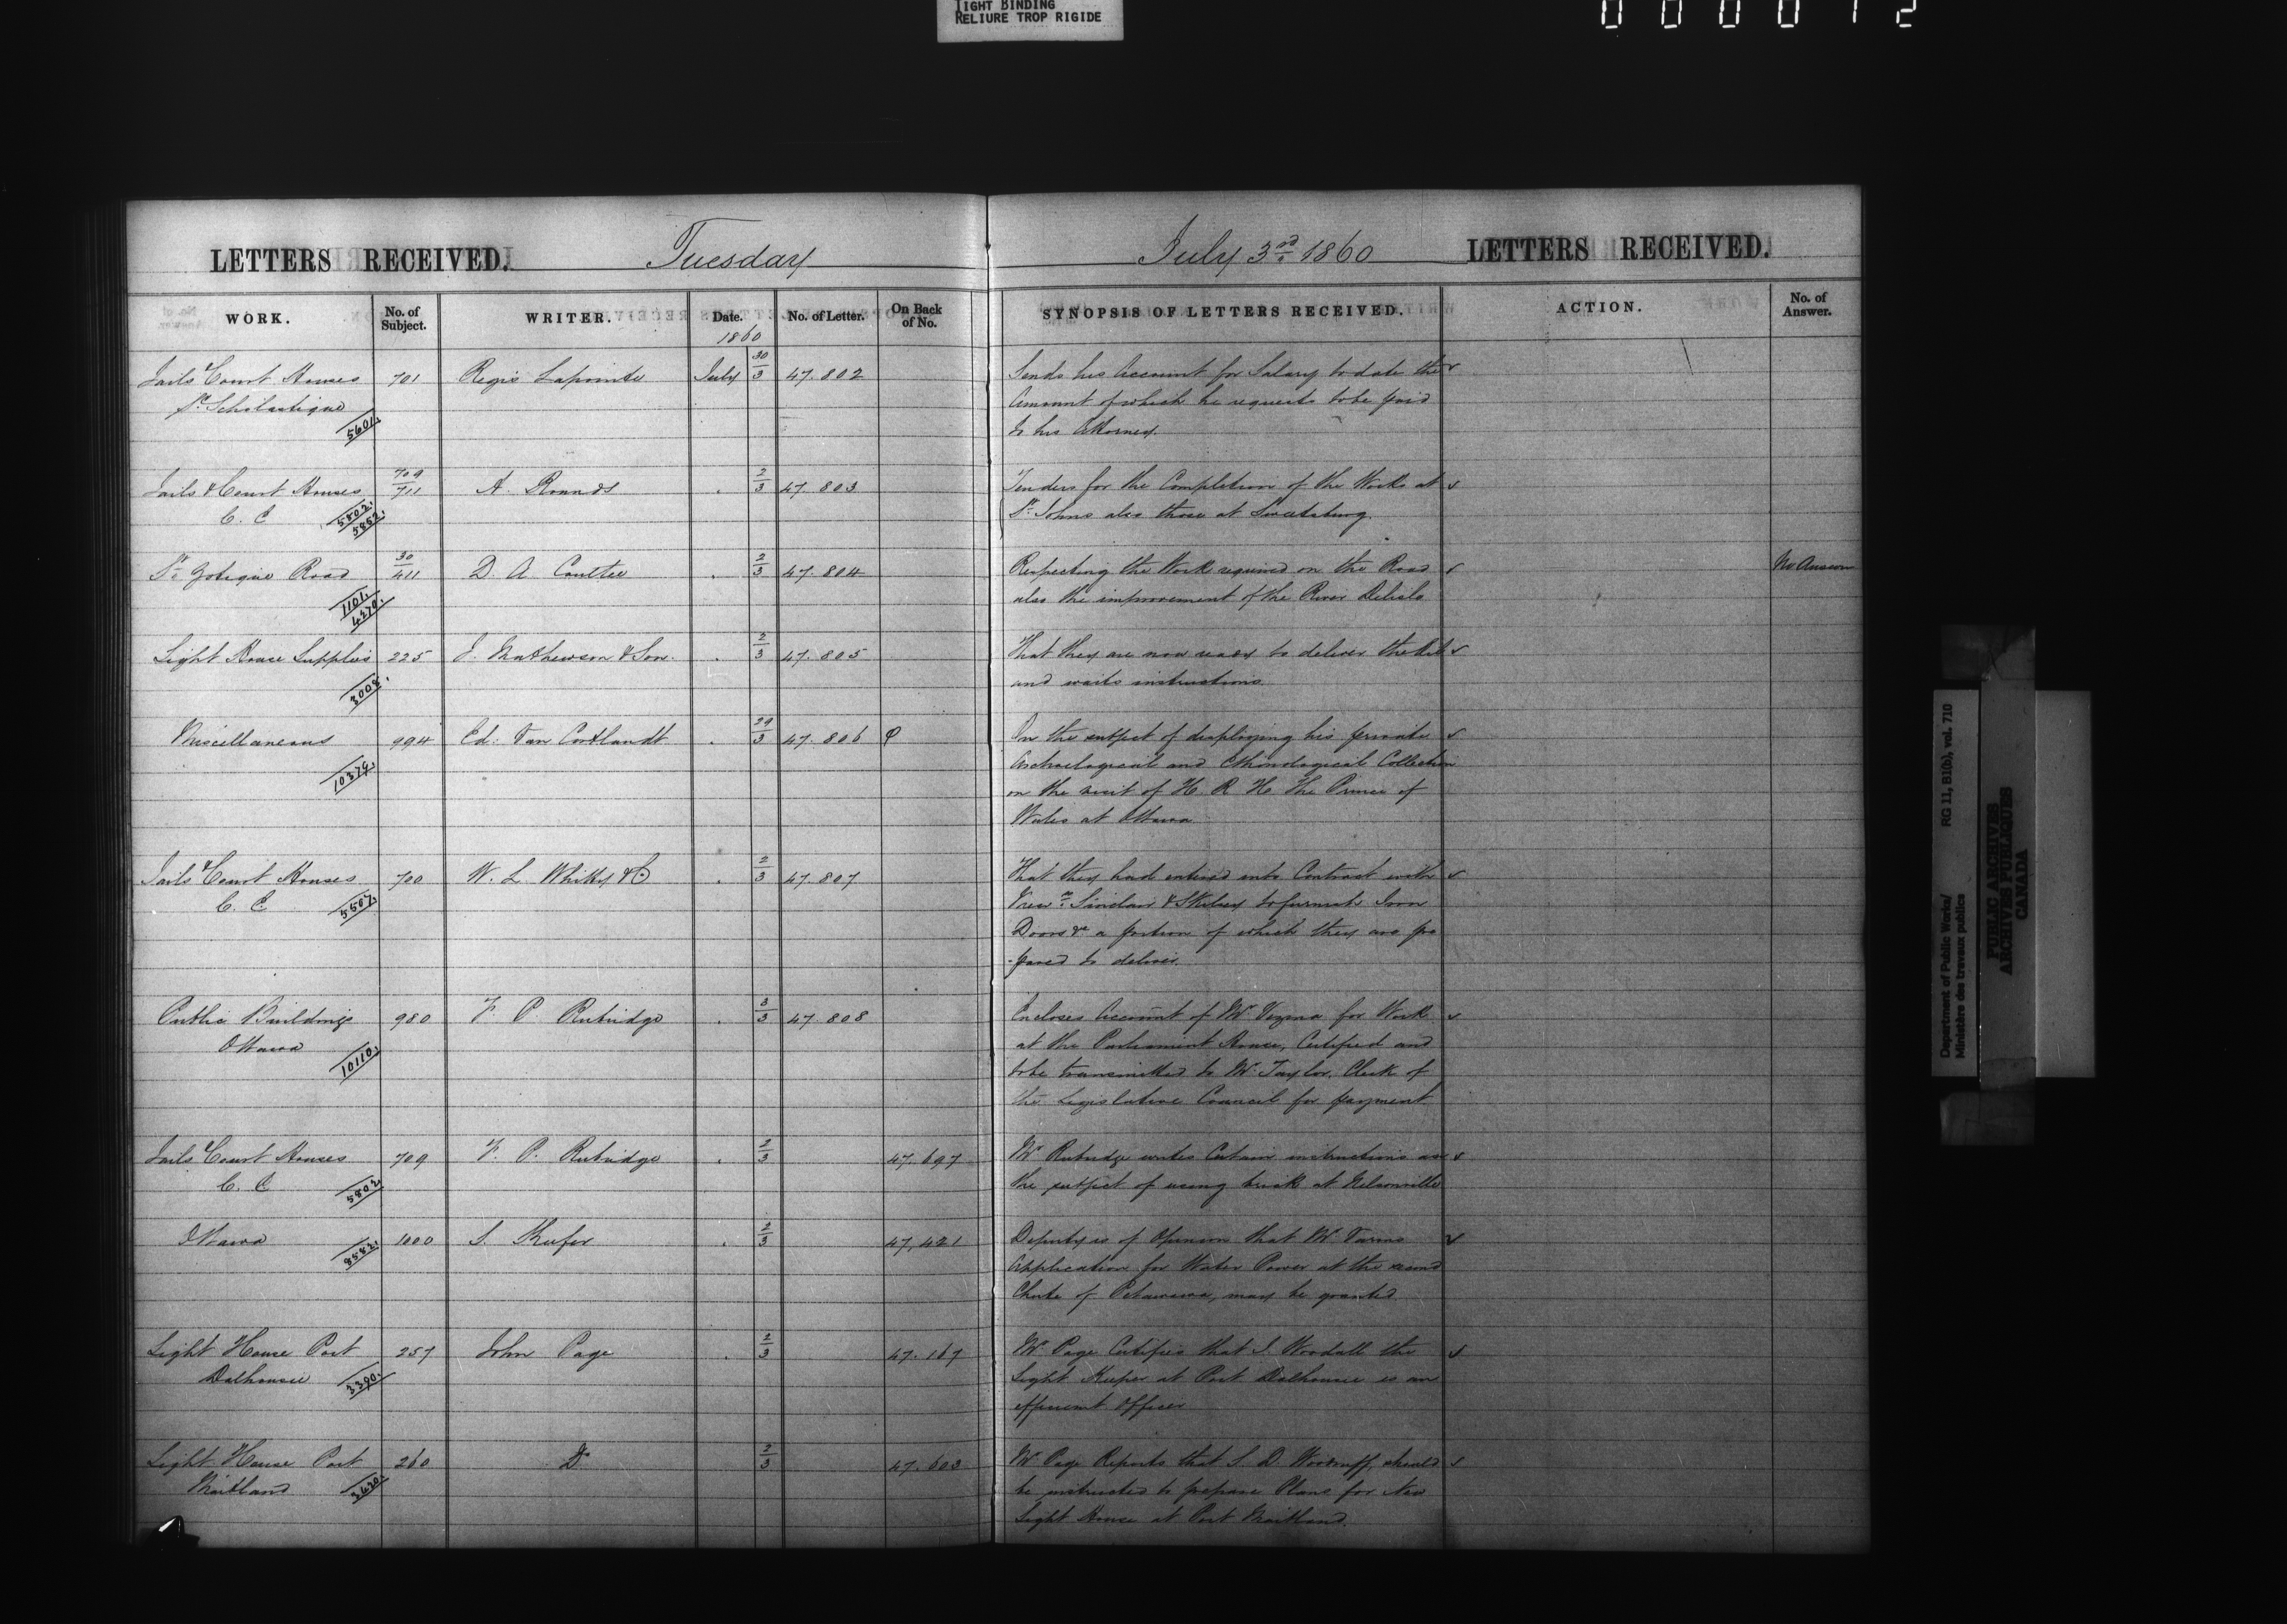 TIGHT BINDING
RELIURE TROP RIGIDE
LETTERS RECEIVED. Tuesday July 3rd 1860 LETTERS RECEIVED.
WORK. No. of Subject. WRITER. Date. No. of Letter. On Back of No. SYNOPSIS OF LETTERS RECEIVED. ACTION. No. of Answer.
1860
Jails & Court Houses 701 Regis Lapointe July 30/3 47.802 Sends his Account for Salary to date the
St. Scholastique Amount of which he requests to be paid
5601. to his Attorney.
Jails & Court Houses 709/711 A. Rounds 2/3 47.803 Tenders for the Completion of the Works at
C. E 5802. 5852. St. Johns also those at Sweetsburg.
St. Zotique Road 30/411 D. A. Coutlee 2/3 47.804 Respecting the Work required on the Road No Answer
1101. 4270. also the improvement of the River Delisle
Light House Supplies 225 J. Mathewson & Son. 2/3 47.805 That they are now ready to deliver the Oil
3008. and waits instructions.
Miscellaneous 994 Ed. Van Cortlandt 29/3 47.806 On the subject of displaying his private
10379. Archaelogical and Ethnological Collection
on the visit of H R H The Prince of
Wales at Ottawa
Jails & Court Houses 700 W. L. Whitty & Co 2/3 47.807 That they had entered into Contract with
C. E. 5507. Sinclair & Skelsey to furnish Iron
Doors &c a portion of which they are pre
-pared to deliver.
Public Buildings 980 F P Rubidge 3/3 47.808 Encloses Account of Mr. Vezina for Work
Ottawa at the Parliament House, Certified and
10110. to be transmitted to Mr. Taylor, Clerk of
the Legislative Council for payment
Jails & Court Houses 709 F. P. Rubidge 2/3 47.697 Mr Rubidge writes Certain instructions on
C. E 5802 the subject of using brick at Nelsonville
Ottawa 1000 S. Keefer 2/3 47,421 Deputy is of Opinion that Mr
8582. Application for Water Power at the second
Chute of Petawawa, may be granted
Light House Port 257 John Page 2/3 47.167 Mr Page Certifies that J. Woodall the
Dalhousie 3390. Light Keeper at Port Dalhousie is an
efficient Officer
Light House Port 260 Do 2/3 47.603 Mr Page Reports that S. D. Woodruff, should
Maitland 3420. be instructed to prepare Plans for New
Light House at Port Maitland.
Department of Public Works/
Ministère des travaux publics
RG 11, B1(b), vol. 710
PUBLIC ARCHIVES
ARCHIVES PUBLIQUES
CANADA